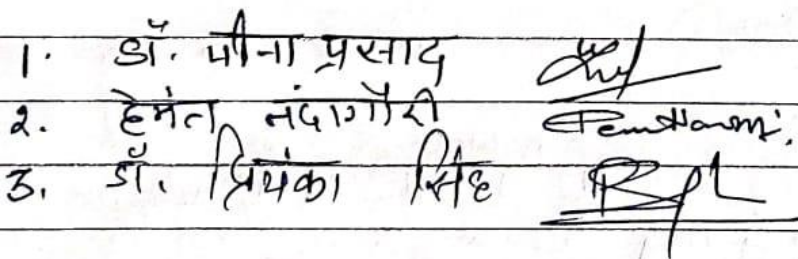 1. डॉ. मीना प्रसाद
2. हेमंत नंदागौरी
3. डॉ. प्रियंका सिंह